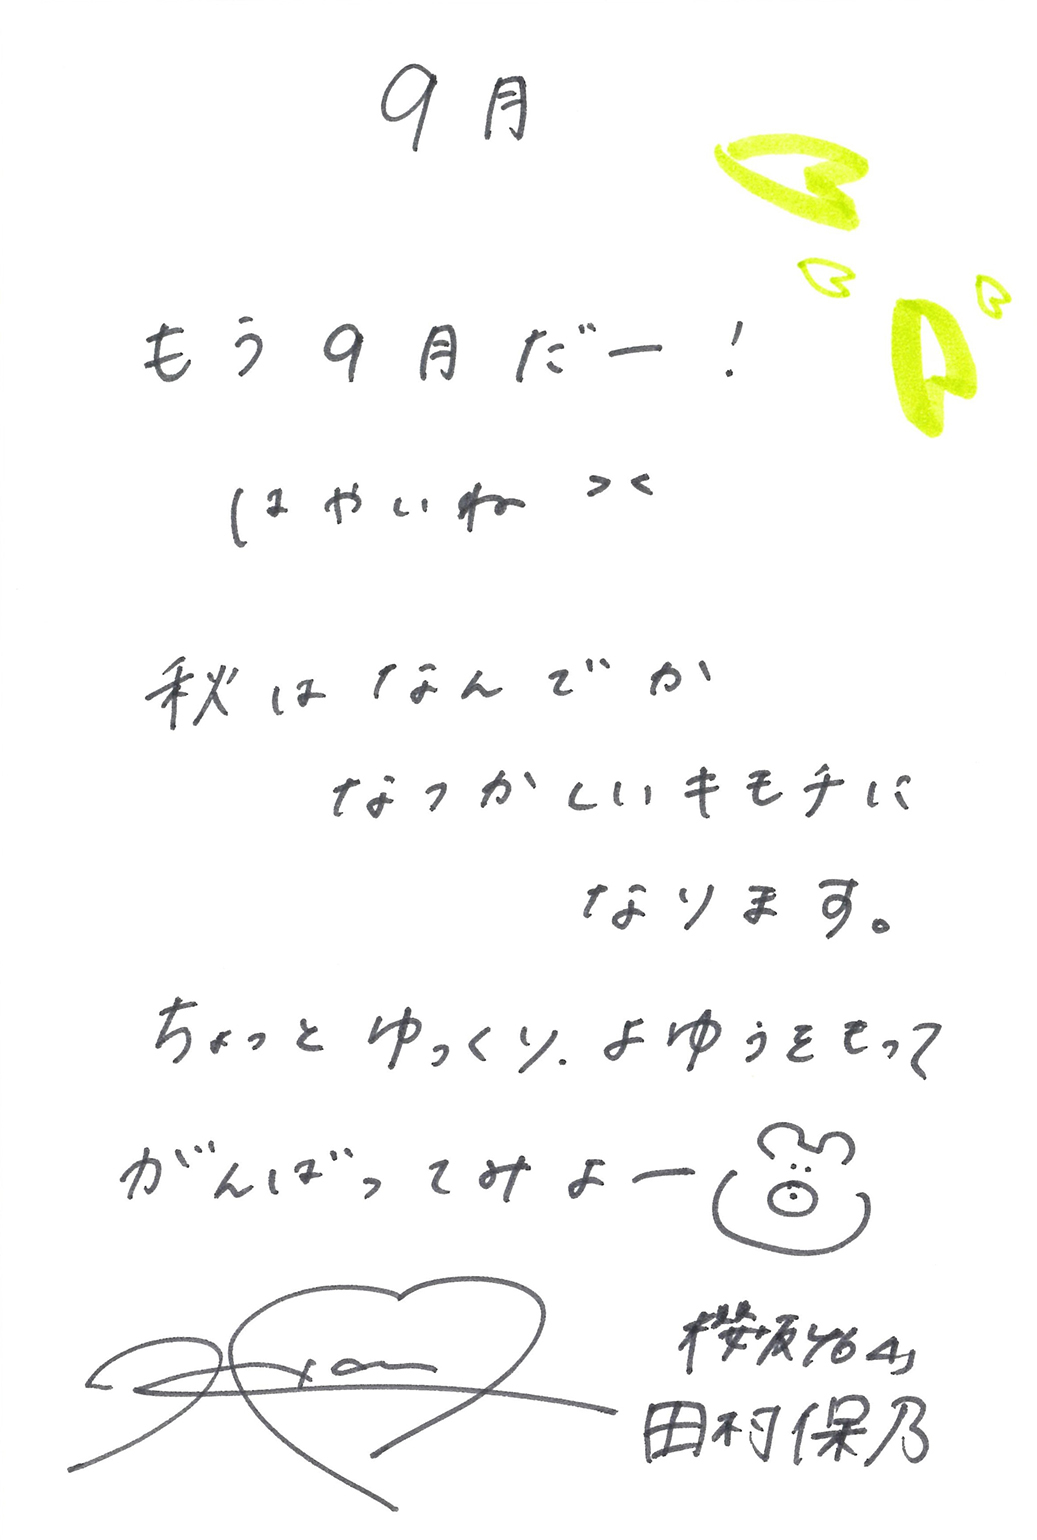 9月
もう9月だー!
はやいね ><
秋はなんでか
なつかしいキモチに
なります。
ちょっとゆっくり、よゆうをもって
がんばってみよー
櫻坂46
田村保乃